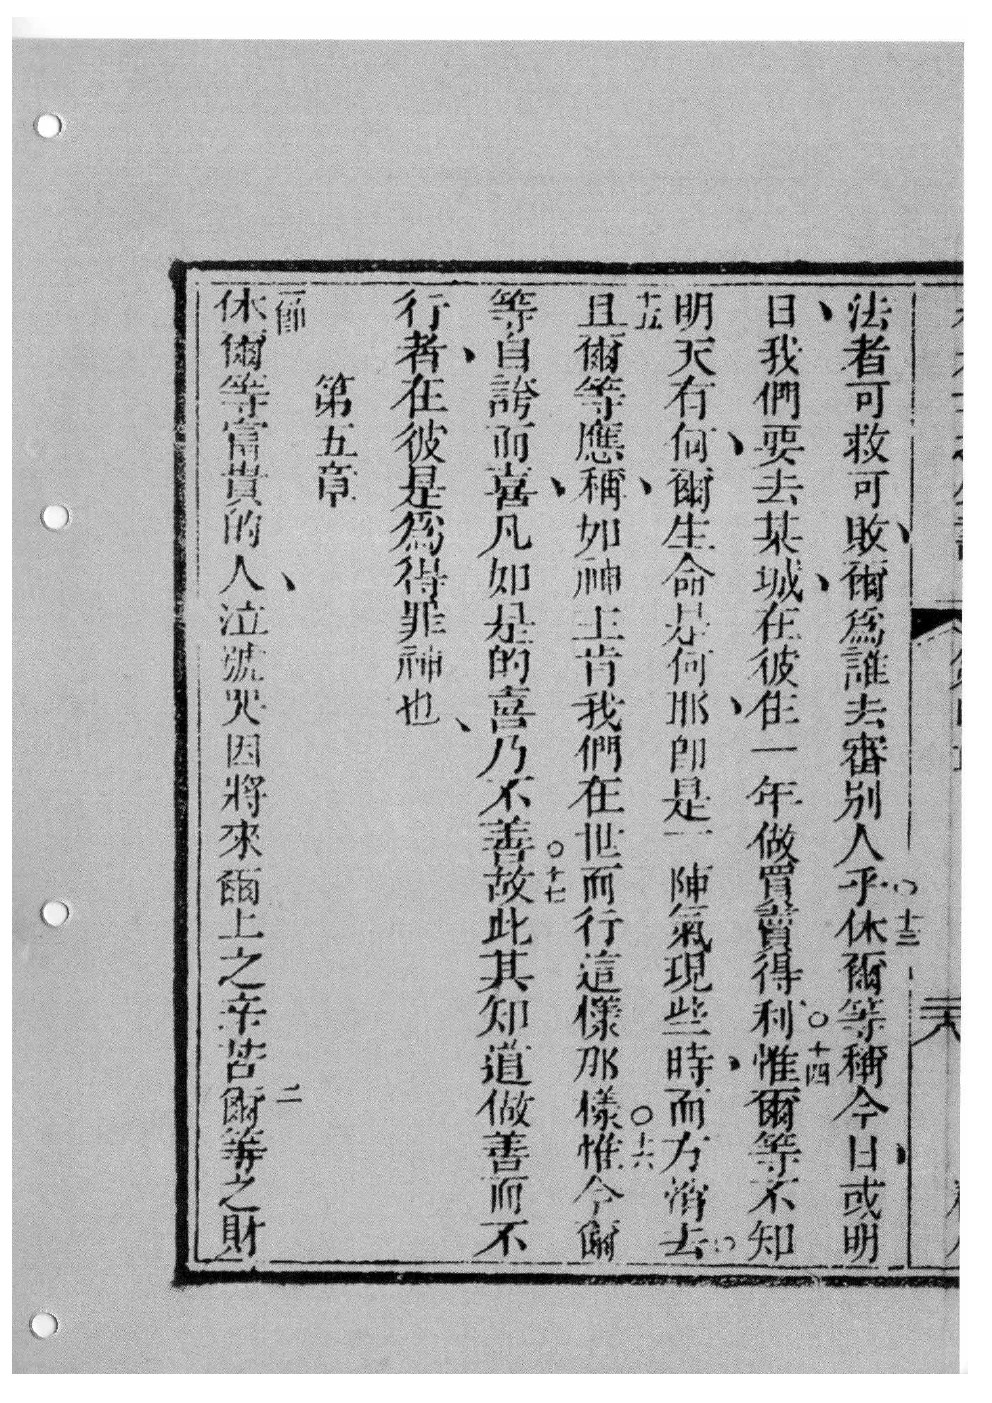 法者可救可敗、爾為誰去審別人乎。○十三休爾等稱今日或明
日、我們要去某城、在彼住一年做買賣得利○十四惟爾等不知
明天有何、爾生命是何耶、卽是一陣氣現些時、而方消去○
十五且爾等應稱、如神主肯我們在世而行這樣那樣○十六惟今爾
等自誇而喜、凡如是的喜乃不善○十七故此其知道做善而不
行者、在彼是爲得罪神也、
第五章
一節休爾等富貴的人、泣號哭因將來爾上之辛苦二爾等之財